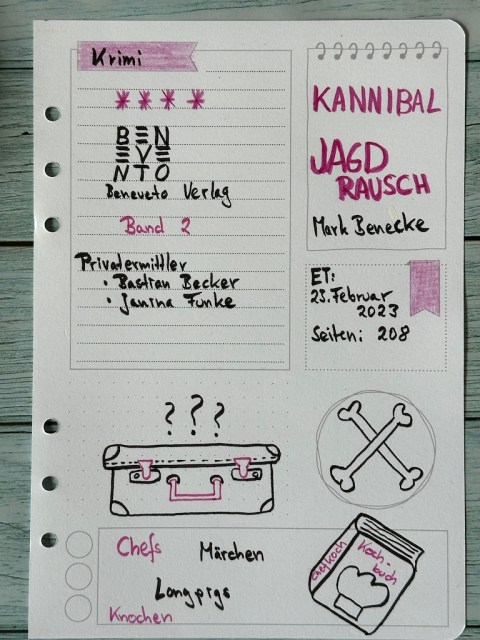 Krimi
* * * *
BEN
EVE
NTO
Beneveto Verlag
Band 2
Privatermittler
• Bastian Becker
• Janina Funke
KANNIBAL
JAGD
RAUSCH
Mark Benecke
ET:
23. Februar
2023
Seiten: 208
? ? ?
Chefs Märchen
Longpigs
Knochen
Chefkoch
Koch-
buch